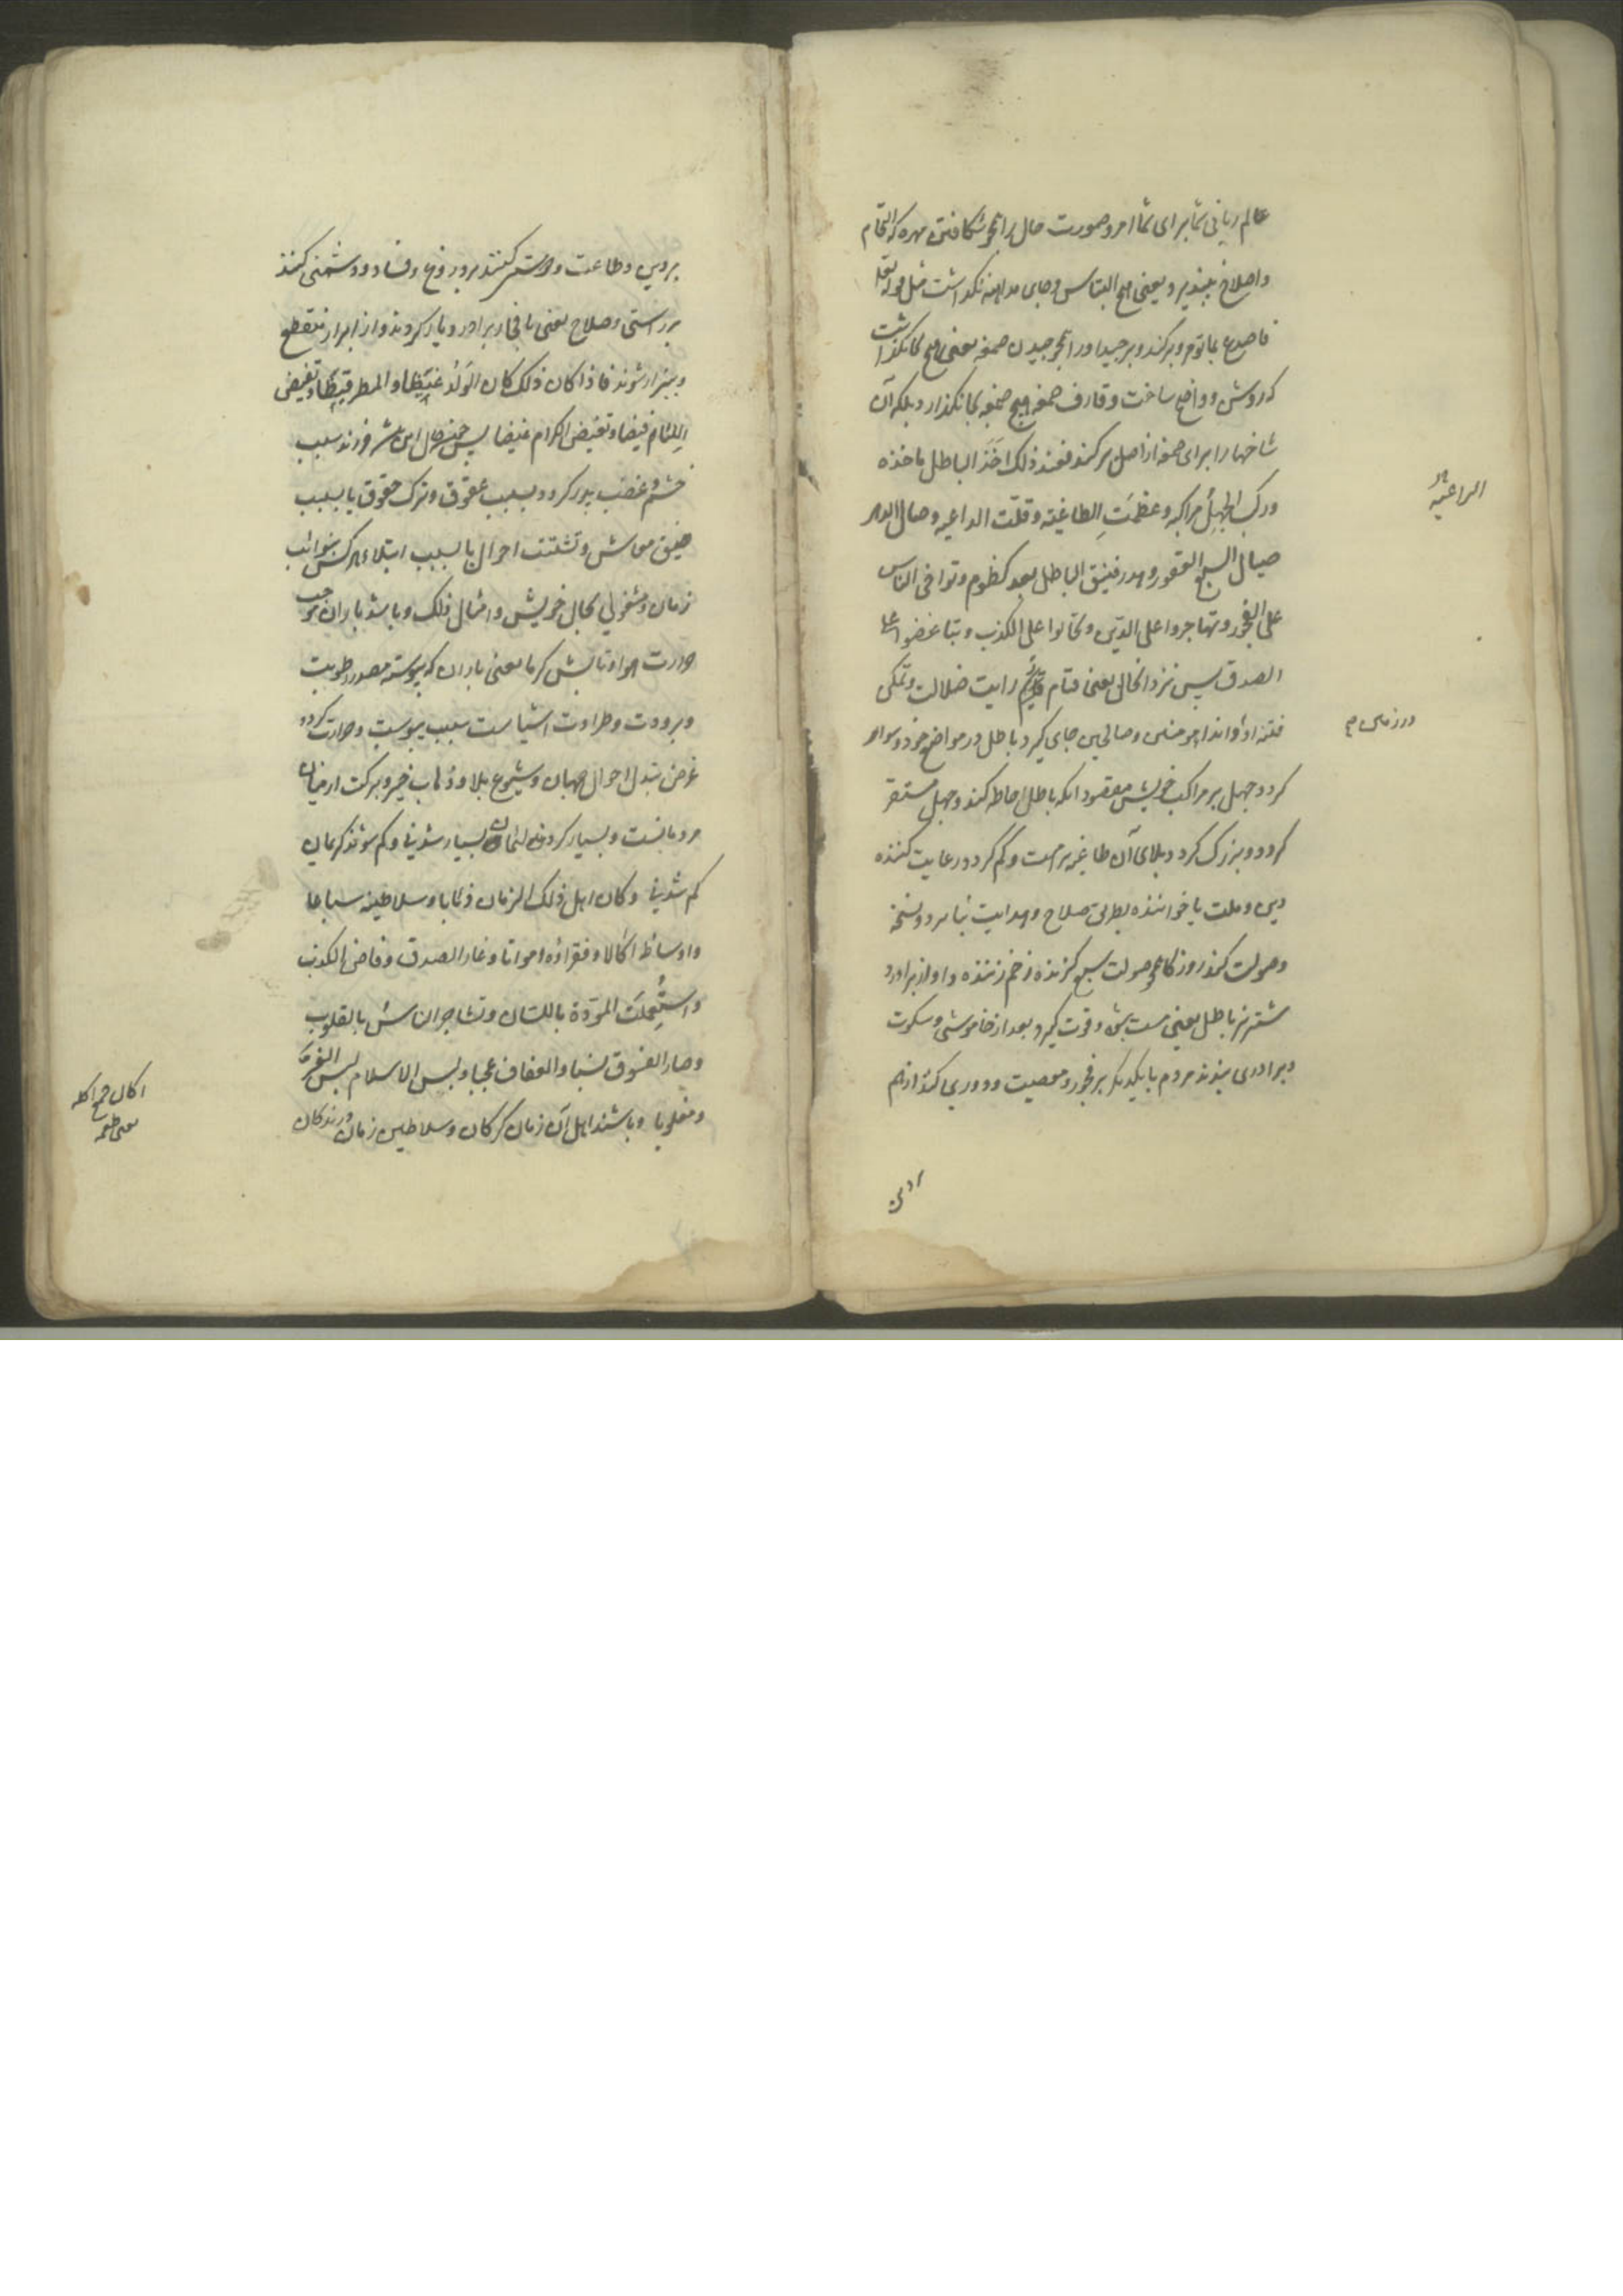 عالم ربانی شما برای شما امر و صورت حال را همچو شکافتن مهره که التیام
واصلاح نپذیرد یعنی هیچ التباس و جای مداهنه نگذاشت مثل قوله تعلا
فاصدع بما تؤمر و برکند و برچید اورا همچو چیدن صمغه یعنی هیچ بجا نگذاشت
که روشن و واضح ساخت و قارف صمغه هیچ صمغه بجا نگذارد بلکه آن
شاخها را برای صمغ از اصل برکند فعند ذلک اخذ الباطل مآخذه
ورکب الجهل مراکبه وعظمت الطاغیته وقلت الداعیه وصال الدهر
صیال السبع العقور وهدر فنیق الباطل بعد کظوم وتواخی الناس
علی الفجور وتهاجروا علی الدین وتحابوا علی الکذب وتباغضوا علی
الصدق پس نزد انحال یعنی قیام رایت ضلالت وتمکن
فتنه او واندا مومنین وصالحین جای گیرد باطل در مواضع خود وسوار
گردد جهل بر مراکب خویش مقصود آنکه باطل احاطه کند وجهل مستقر
گردد وبزرگ گردد وبلای آن طاغیه پر است وکم گردد رعایت کننده
دین وملت یا خواننده بطریق صلاح وهدایت بنابر دو نسخه
وصولت کند روزگار همچو صولت سبع گزنده زخم زننده واواز برآورد
شتر نر باطل یعنی مست شود وقوت گیرد بعد از خاموشی وسکوت
وبرادری کنند مردم با یکدیگر بر فجور ومعصیت ودوری کنند از هم
الراعیه
در زمین
بر دین
بر دین وطاعت ودوستی کنند بر دروغ وفساد ودشمنی کنند
بر راستی وصلاح یعنی با فجار برادر ویار گردند واز ابرار منقطع
وبیزار شوند فاذا کان ذلک کان الولد غیظا والمطر قیظا وتفیض
اللئام فیضا وتغیض الکرام غیضا پس چون حال این باشد فرزند سبب
خشم و غضب پدر گردد بسبب عقوق وترک حقوق یا بسبب
ضیق معاش وتشتت احوال یا بسبب ابتلاء هر کس بنوائب
زمان ومشغولی بحال خویش وامثال ذلک وباشد باران موجب
حرارت هوا وتابش گرما یعنی باران که پیوسته مصدر رطوبت
وبرودت وطراوت اشیا ست سبب یبوست وحرارت گردد
غرض تبدل احوال جهان وشیوع بلا وذهاب خیر وبرکت از میان
مردمانست وبسیار گردند لئیمان بسیار شدنی وکم شوند کریمان
کم شدنی وکان اهل ذلک الزمان ذئابا وسلاطینه سباعا
واوساطه اکالا وفقراؤه امواتا وغار الصدق وفاض الکذب
واستعملت المودة باللسان وتشاجر الناس بالقلوب
وصار الفسوق نسبا والعفاف عجبا ولبس الاسلام لبس الفرو
مقلوبا وباشند اهل آن زمان گرگان وسلاطین زمان درندگان
اکال جمع اکله
بمعنی طعمه